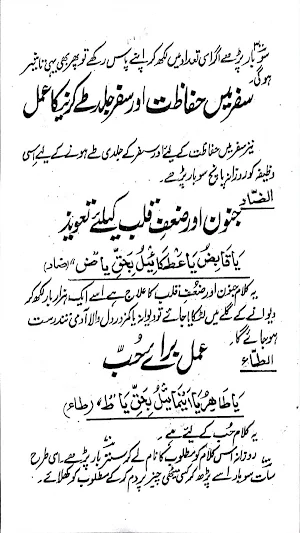 سو بار پڑھے اگر اسی تعداد میں لکھ کر اپنے پاس رکھے تو پھر بھی یہی تاثیر
ہوگی۔
سفر میں حفاظت اور سفر جلد طے کرنیکا عمل
نیز سفر میں حفاظت کے لیے اور سفر کے جلدی طے ہونے کے لیے اسی
وظیفہ کو روزانہ پانچ سو بار پڑھے۔
الضاد
جنون اور ضعفِ قلب کیلئے تعویذ
یا قابض یا عطکائیل بحق یا ض" (ضاد)
یہ کلام جنون اور ضعف قلب کا علاج ہے اسے ایک ہزار بار لکھ کر
دیوانے کے گلے میں لٹکایا جائے تو دیوانہ یا کمزور دل والا آدمی تندرست
ہو جائے گا۔
الطاء
عمل برائے حُبّ
یا طاھر یا اسمائیل بحق یا ط" (طاء)
یہ کلام حُب کے لیے ہے۔
روزانہ اس کلام کو مطلوب کا نام لے کر ستر بار پڑھے۔ اسی طرح
سات سو بار اسے پڑھ کر کسی میٹھی چیز پر دم کر کے مطلوب کو کھلائے۔